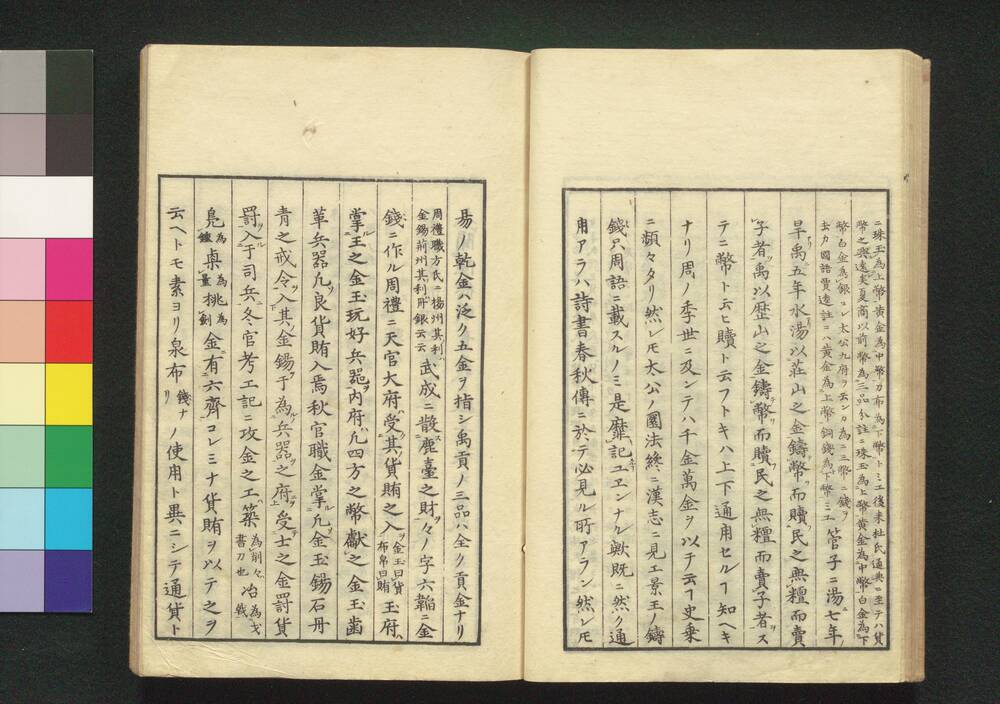 ニ珠玉為上幣黄金為中幣刀布為下幣トミエ後来杜氏通典ニ至テハ貨
幣之興遠矣夏商以前幣為三品分註ニ珠玉為上幣黄金為中幣白金為下
幣白金為銀コレ太公九府ヲ云ンカ為ニ三幣ニ銭ヲ
去カ國語賈逵註ニハ黄金為上幣銅錢為下幣ミエ
管子ニ湯七年
旱禹五年水湯以莊山之金鑄幣而贖民之無糧而賣
子者禹以歴山之金鑄幣而贖民之無糧而賣子者ス
テニ幣ト云ヒ贖ト云フトキハ上下通用セルヿ知ヘキ
ナリ周ノ季世ニ及ンテハ千金萬金ヲ以テ云ヿ史乗
ニ類々タリ然レモ太公ノ圜法終ニ漢志ニ見エ景王ノ鑄
錢只周語ニ載スルノミ是靡記ユエンナル歟既ニ然ク通
用アラハ詩書春秋傳ニ於テ必見ル所アラン然レモ
易ノ乾金ハ泛ク五金ヲ指シ禹貢ノ三品ハ全ク貢金ナリ
周禮職方氏ニ揚州其利
金錫荊州其利丹銀云云
武成ニ散鹿臺之財々ノ字六韜ニ金
錢ニ作ル周禮ニ天官大府受其貨賄之入
金玉曰貨
布帛曰賄
玉府
掌王之金玉玩好兵器内府凡四方之幣獻之金玉齒
革兵器凡良貨賄入焉秋官職金掌凡金玉錫石丹
青之戒令入其金錫于為兵器之府受士之金罰貨
罰入于司兵冬官考工記ニ攻金之工築
為削々
書刀也
冶
為戈
戟
鳧
為
鐘
㮚
為
量
桃
為
劍
金有六齊コレミナ貨賄ヲ以テ之ヲ
云ヘトモ素ヨリ泉布
錢ナ
リ
ノ使用ト異ニシテ通貨ト